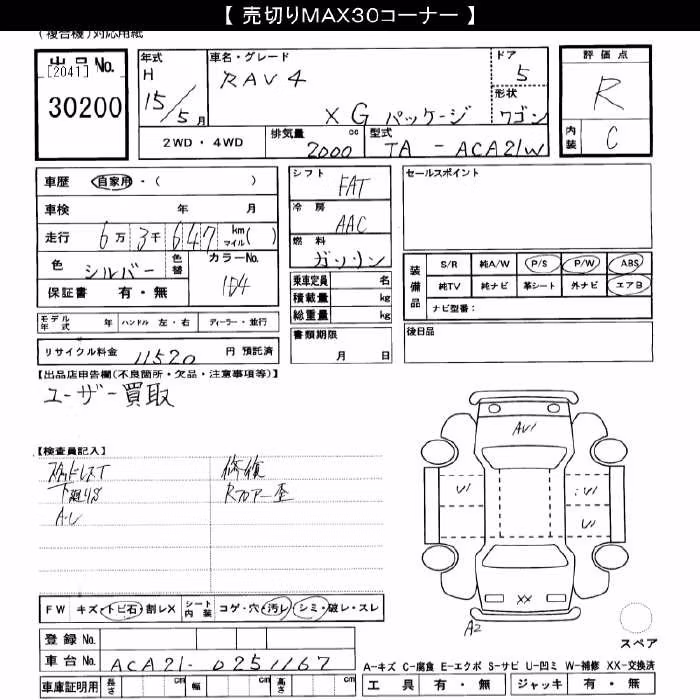 【 売切りMAX30コーナー 】
(複合機)対応用紙
出品No.
[2041]
30200
年式
H
15/5月
車名・グレード
RAV4
XGパッケージ
ドア
5
形状
ワゴン
評価点
R
内装
C
2WD・4WD
排気量
2000 cc
型式
TA-ACA21W
車歴 自家用・( )
車検 年 月
走行 6万3千647 km マイル( )
色 シルバー 色替
カラーNo.
1D4
保証書 有・無
シフト
FAT
冷房
AAC
燃料
ガソリン
乗車定員 名
積載量 kg
総重量 kg
セールスポイント
装備品
S/R 純A/W P/S P/W ABS
純TV 純ナビ 革シート 外ナビ エアB
ナビ型番:
モデル年式 年 ハンドル 左・右 ディーラー・並行
書類期限
月 日
後日品
リサイクル料金 11520 円 預託済
【出品店申告欄(不良箇所・欠品・注意事項等)】
ユーザー買取
【検査員記入】
スタッドレスT
修復
下廻りS
Rフロアー歪
A・U
AU1
U1
U1
U
XX
A2
FW キズ・トビ石・割レX
シート内装 コゲ・穴・汚レ・シミ・破レ・スレ
スペア
登録No.
車台No. ACA21-0251167
A-キズ C-腐食 E-エクボ S-サビ U-凹ミ W-補修 XX-交換済
車庫証明用 長さ cm 幅 cm 高さ cm
工具 有・無 ジャッキ 有・無